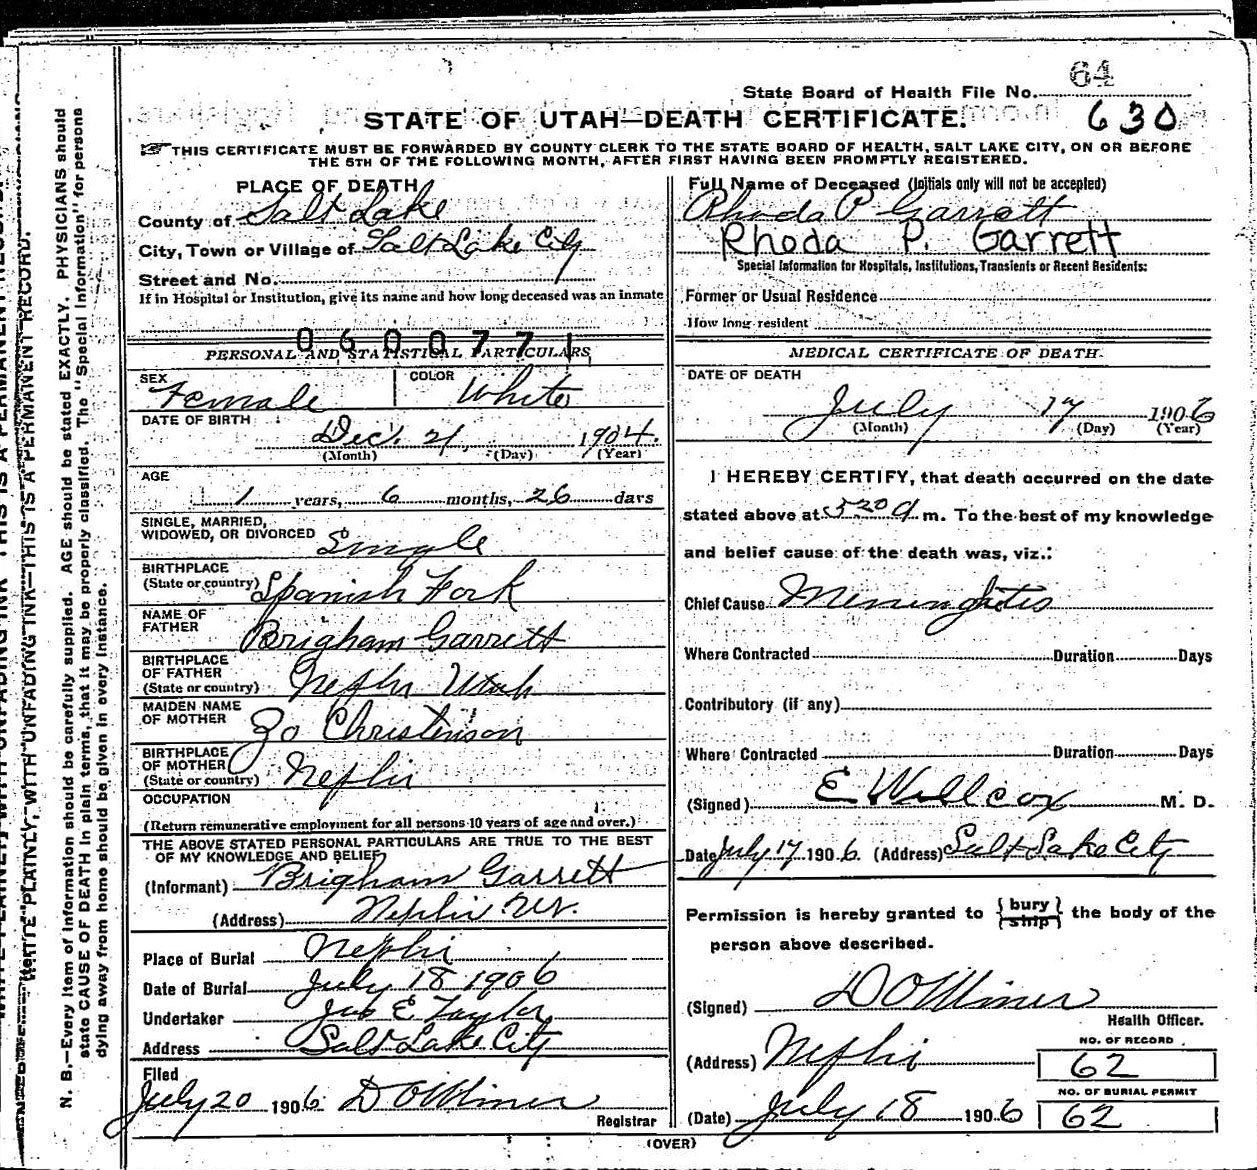 64
State Board of Health File No.
STATE OF UTAH—DEATH CERTIFICATE.
630
THIS CERTIFICATE MUST BE FORWARDED BY COUNTY CLERK TO THE STATE BOARD OF HEALTH, SALT LAKE CITY, ON OR BEFORE
THE 5TH OF THE FOLLOWING MONTH, AFTER FIRST HAVING BEEN PROMPTLY REGISTERED.
N. B.—Every item of information should be carefully supplied. AGE should be stated EXACTLY. PHYSICIANS should
state CAUSE OF DEATH in plain terms, that it may be properly classified. The "Special Information" for persons
dying away from home should be given in every instance.
WRITE PLAINLY, WITH UNFADING INK—THIS IS A PERMANENT RECORD.
PLACE OF DEATH
County of Salt Lake
City, Town or Village of Salt Lake City
Street and No.
If in Hospital or Institution, give its name and how long deceased was an inmate
060077
PERSONAL AND STATISTICAL PARTICULARS
SEX Female COLOR White
DATE OF BIRTH Dec. 21, 1904.
(Month) (Day) (Year)
AGE
1 years, 6 months, 26 days
SINGLE, MARRIED,
WIDOWED, OR DIVORCED Single
BIRTHPLACE
(State or country) Spanish Fork
NAME OF
FATHER Brigham Garrett
BIRTHPLACE
OF FATHER
(State or country) Nephi Utah
MAIDEN NAME
OF MOTHER Zo Christenson
BIRTHPLACE
OF MOTHER
(State or country) Nephi
OCCUPATION
(Return remunerative employment for all persons 10 years of age and over.)
THE ABOVE STATED PERSONAL PARTICULARS ARE TRUE TO THE BEST
OF MY KNOWLEDGE AND BELIEF
(Informant) Brigham Garrett
(Address) Nephi Ut.
Place of Burial Nephi
Date of Burial July 18 1906
Undertaker Jos E Taylor
Address Salt Lake City
Filed
July 20 1906 D O Miner
Registrar
Full Name of Deceased (Initials only will not be accepted)
Rhoda P Garrett
Rhoda P. Garrett
Special Information for Hospitals, Institutions, Transients or Recent Residents:
Former or Usual Residence
How long resident
MEDICAL CERTIFICATE OF DEATH
DATE OF DEATH
July 17 1906
(Month) (Day) (Year)
I HEREBY CERTIFY, that death occurred on the date
stated above at 5 20 a m. To the best of my knowledge
and belief cause of the death was, viz.:
Chief Cause Meninghitis
Where Contracted Duration Days
Contributory (if any)
Where Contracted Duration Days
(Signed) E Willcox M. D.
Date July 17 1906. (Address) Salt Lake City
Permission is hereby granted to { bury / ship } the body of the
person above described.
(Signed) D O Miner
Health Officer.
(Address) Nephi
NO. OF RECORD
62
(Date) July 18 1906
NO. OF BURIAL PERMIT
62
(OVER)